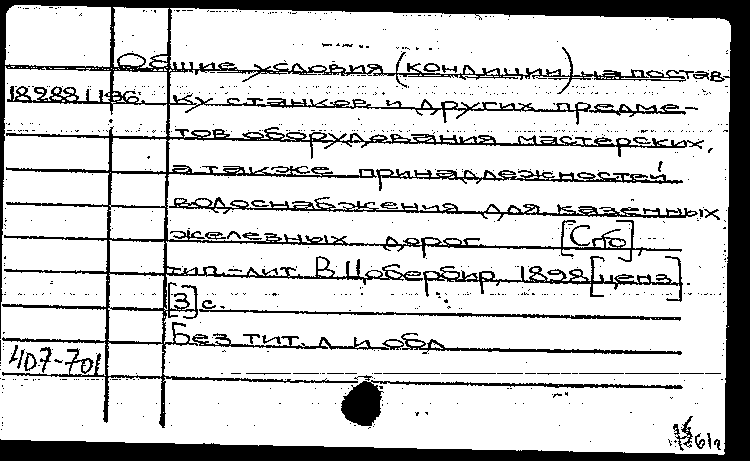 Общие условия (кондиции) на постав-
ку станков и других предме-
тов оборудования мастерских,
а также принадлежностей
водоснабжения для казенных
железных дорог [Спб],
тип.-лит. В. Цобербир, 1898 [ценз].
[3] с.
Без тит. л и обл
407-701